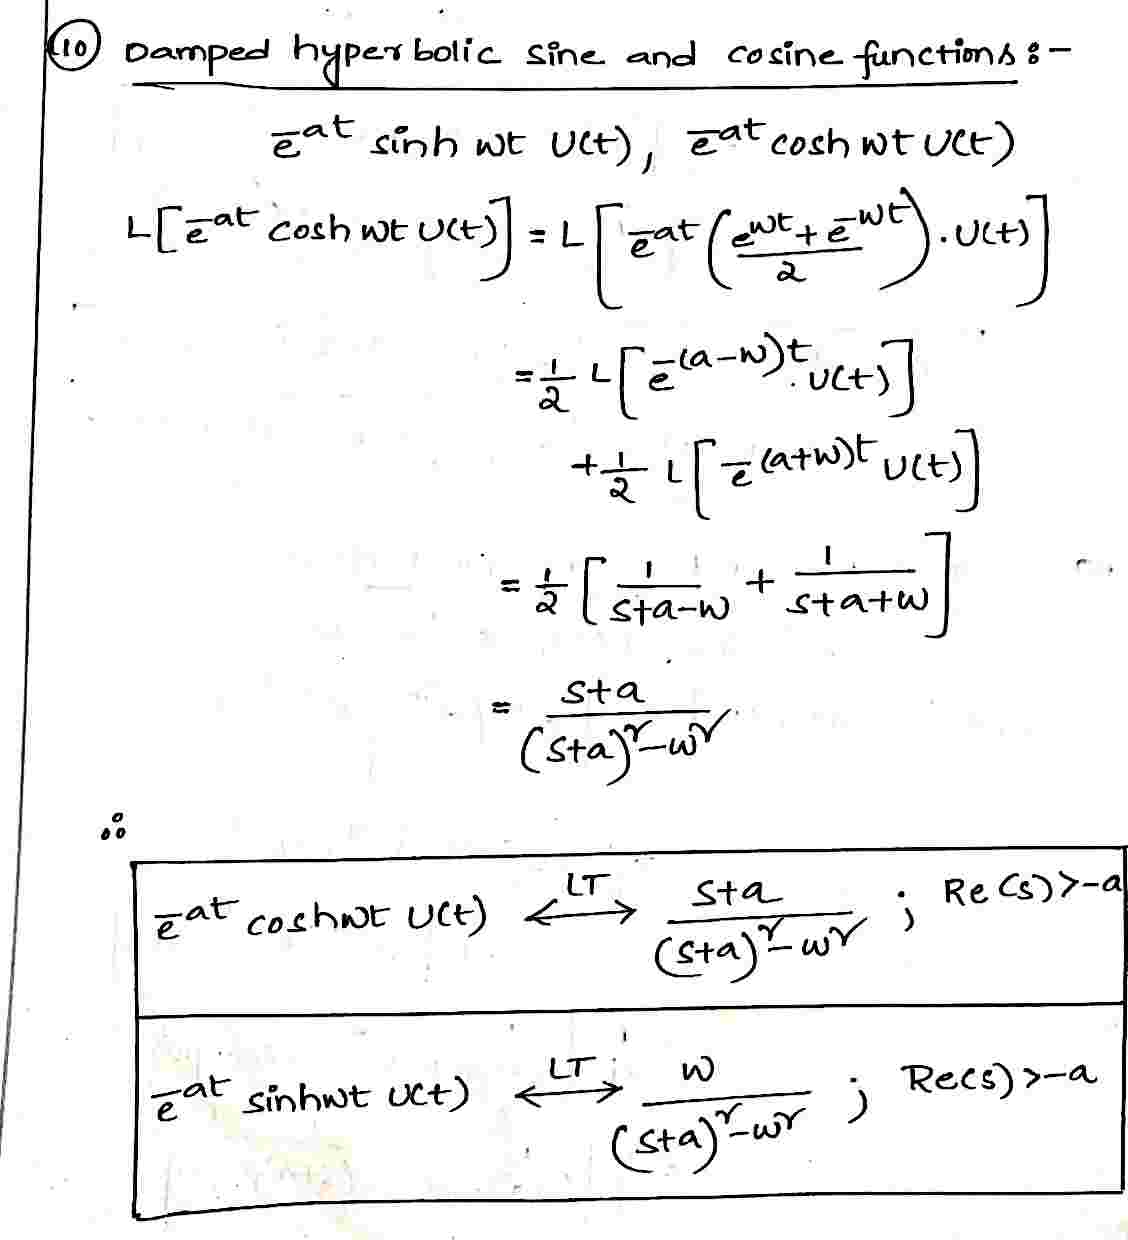 (10) Damped hyperbolic sine and cosine functions :-
e^-at sinh wt u(t), e^-at cosh wt u(t)
L[e^-at cosh wt u(t)] = L[e^-at ((e^wt + e^-wt)/2) . u(t)]
= 1/2 L[e^-(a-w)t . u(t)]
+ 1/2 L[e^-(a+w)t u(t)]
= 1/2 [1/(s+a-w) + 1/(s+a+w)]
= (s+a)/((s+a)^2 - w^2)
∴
e^-at coshwt u(t) <-LT-> (s+a)/((s+a)^2 - w^2) ; Re(s)>-a
e^-at sinhwt u(t) <-LT-> w/((s+a)^2 - w^2) ; Re(s)>-a